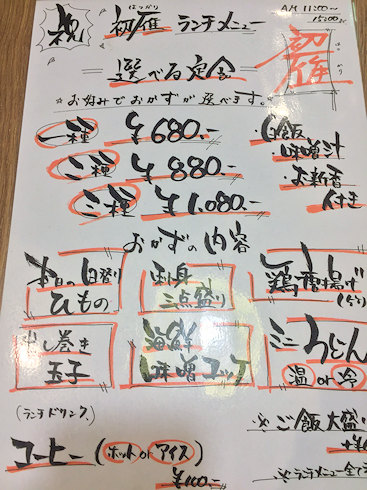 祝
はつかり
初雁 ランチメニュー
AM 11:00〜
15:00迄
初雁
はつかり
選べる定食
☆お好みでおかずが選べます。☆
一種 ¥680.-
二種 ¥880.-
三種 ¥1,080.-
・白飯
・味噌汁
・お新香
付き
おかずの内容
本日の日替り
ひもの
刺身
三点盛り
鶏唐揚げ
出し巻き
玉子
海鮮
味噌コロッケ
ミニうどん
温 or 冷
(ランチドリンク)
コーヒー (ホット or アイス)
¥100.-
※ご飯大盛り
※ランチメニュー全て